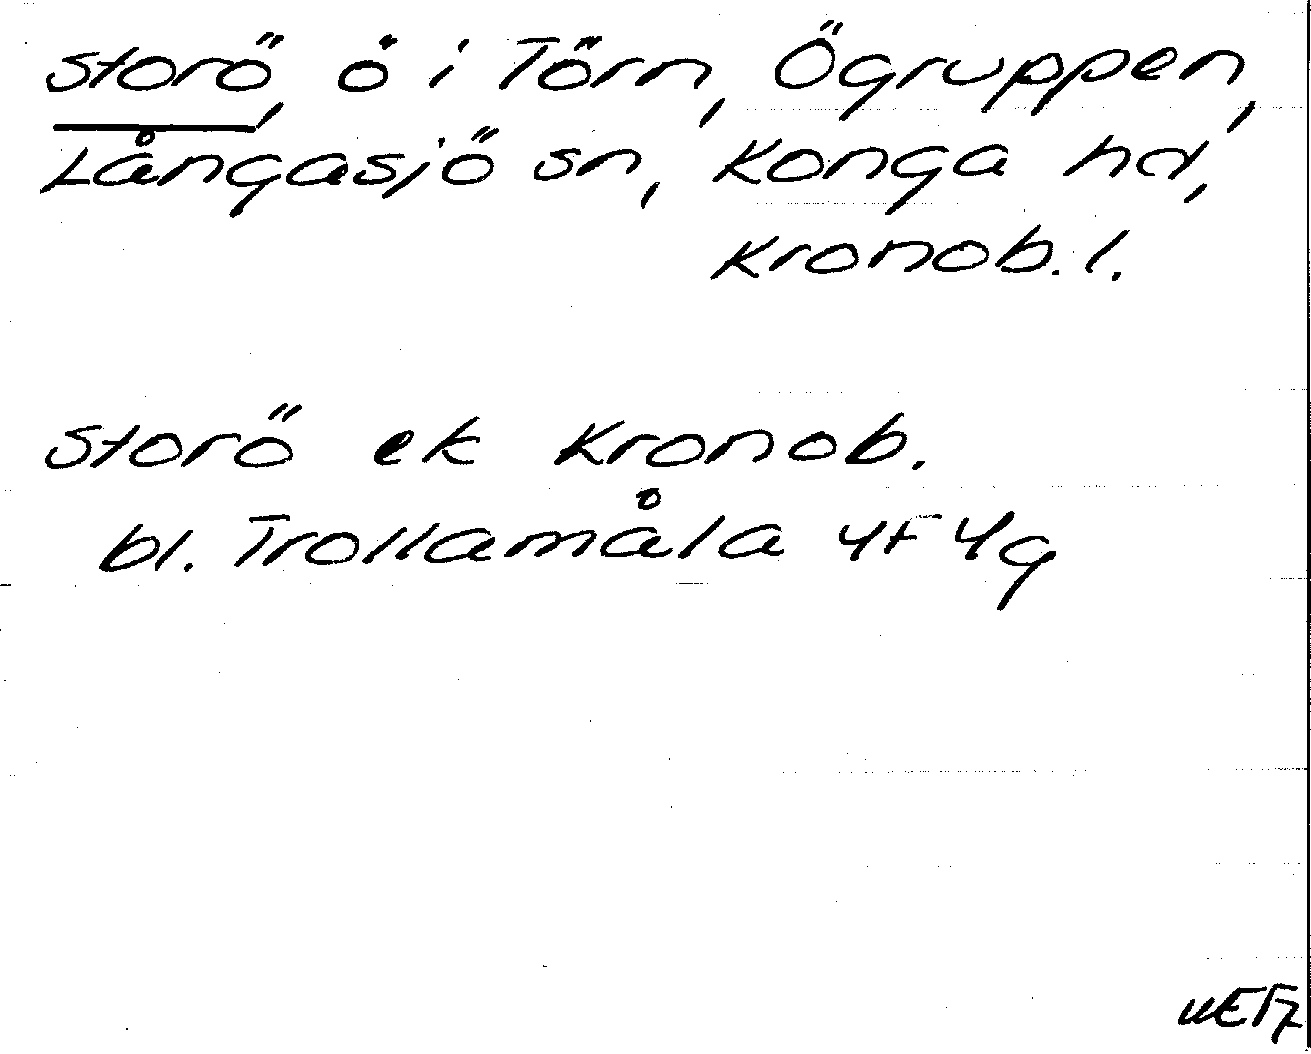 Storö, ö i Törn, Ögruppen,
Långasjö sn, Konga hd,
Kronob. l.
Storö ek Kronob.
bl. Trollamåla 4F 4g